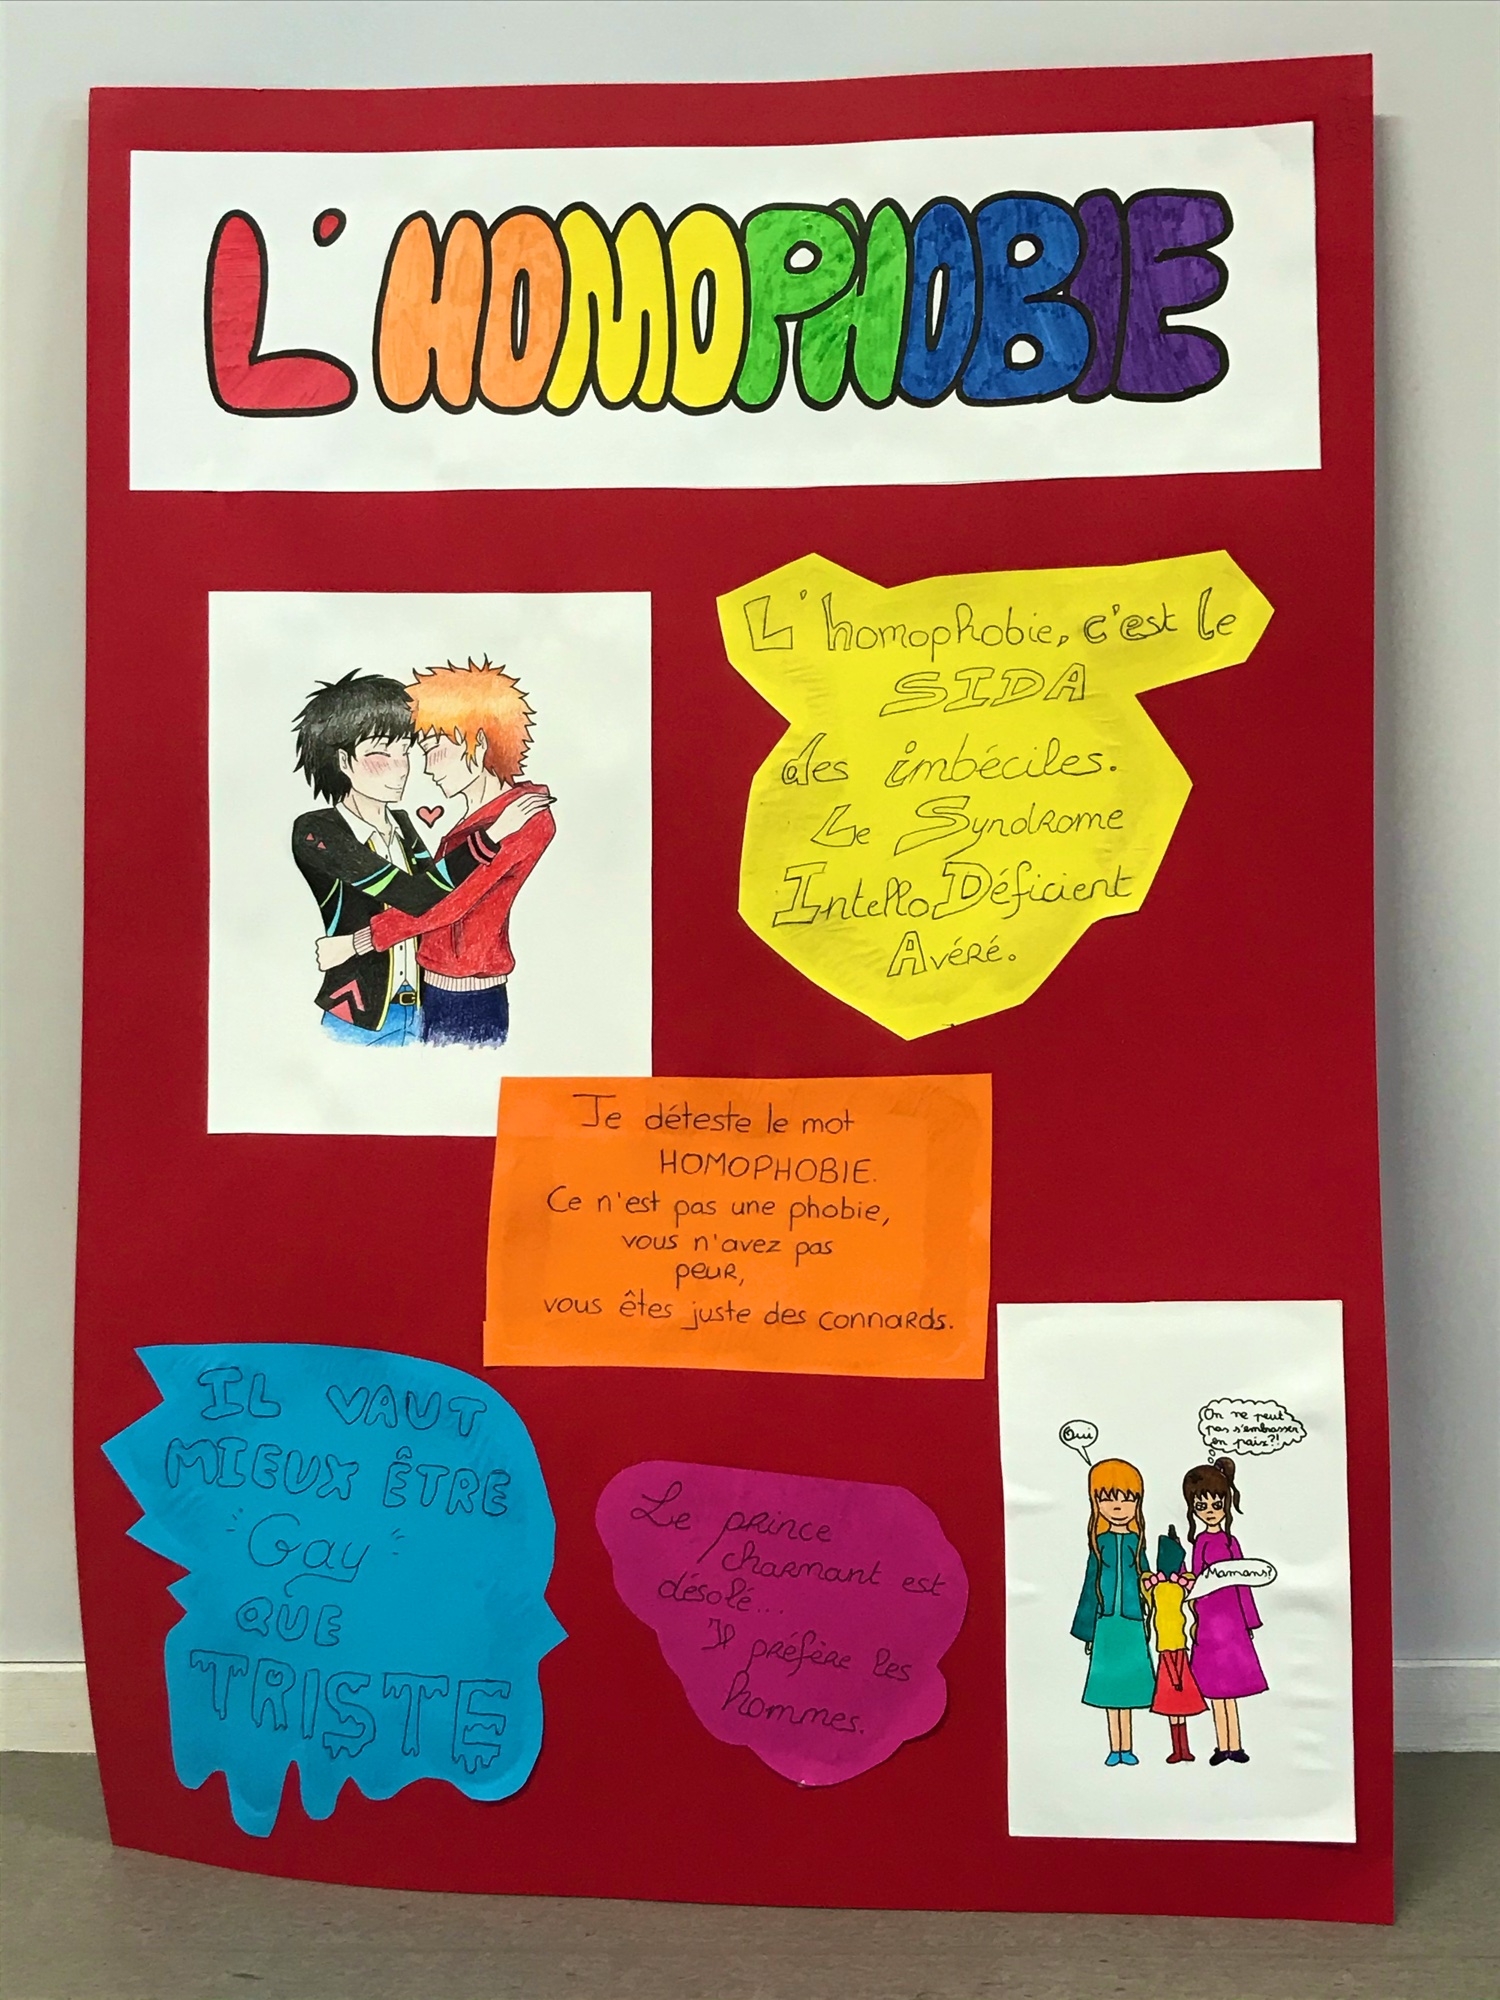 L'HOMOPHOBIE
L'homophobie, c'est le
SIDA
des imbéciles.
Le Syndrome
Intello Déficient
Avéré.
Je déteste le mot
HOMOPHOBIE.
Ce n'est pas une phobie,
vous n'avez pas
peur,
vous êtes juste des connards.
IL VAUT
MIEUX ÊTRE
"Gay"
QUE
TRISTE
Le prince
charmant est
désolé...
Il préfère les
hommes.
Oui
On ne peut
pas s'embrasser
en paix?!
Mamans?